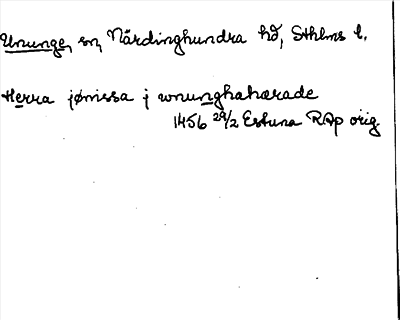 Ununge, sn, Närdinghundra hd, Sthlms l.
Herra jønissa j wnunghahærade
1456 29/2 Estuna RAp orig.